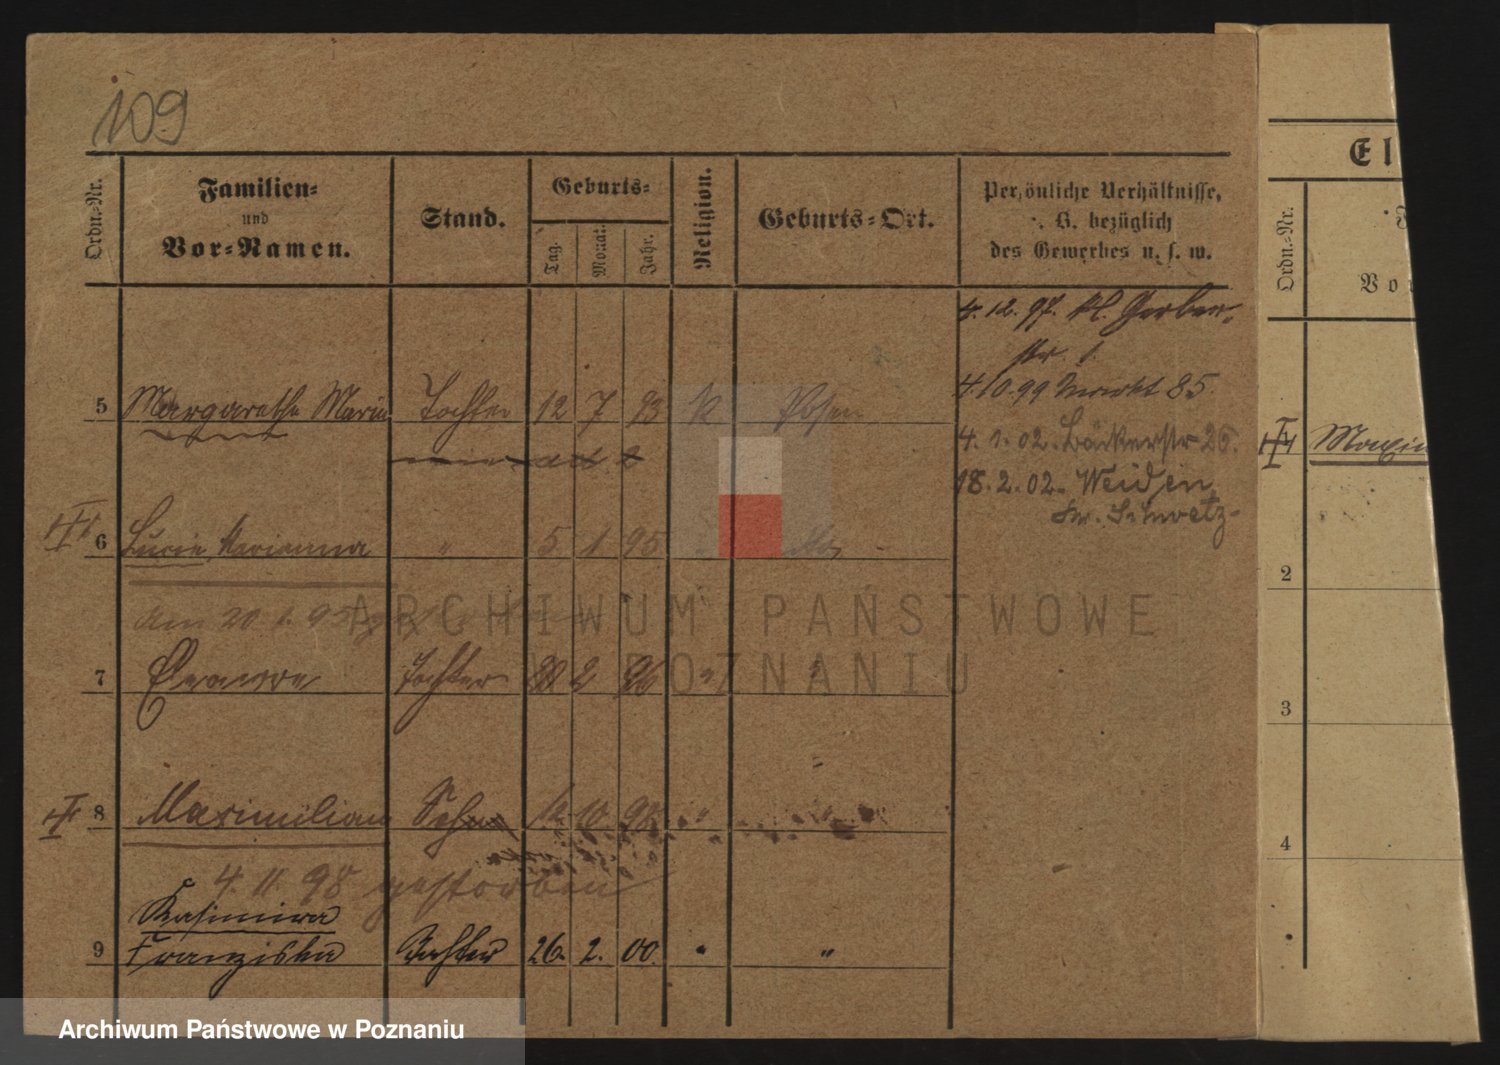 109
Ordn.-Nr.
Familien-
und
Vor-Namen.
Stand.
Geburts-
Tag.
Monat.
Jahr.
Religion.
Geburts-Ort.
Persönliche Verhältnisse,
z. B. bezüglich
des Gewerbes u. s. w.
El
Ordn.-Nr.
4. 12. 97. kl. Gerber-
str. 1.
5 Margarethe Maria Tochter 12 7 93 K Posen
4.10.99 Markt 85
4. 1. 02. Bäckerstr 25.
18. 2. 02. Weiden
Kr. Schwetz-
6 Lucie Marianna " 5 1 95
am 20 1. 95
7 Eleonore Tochter 2 96 " "
8 Maximilian Sohn 12. 10. 98 " "
4. 11. 98 gestorben
Kasimira
9 Franziska Tochter 26. 2. 00. " "
Maxim
2
3
4
ARCHIWUM PAŃSTWOWE
W POZNANIU
Archiwum Państwowe w Poznaniu